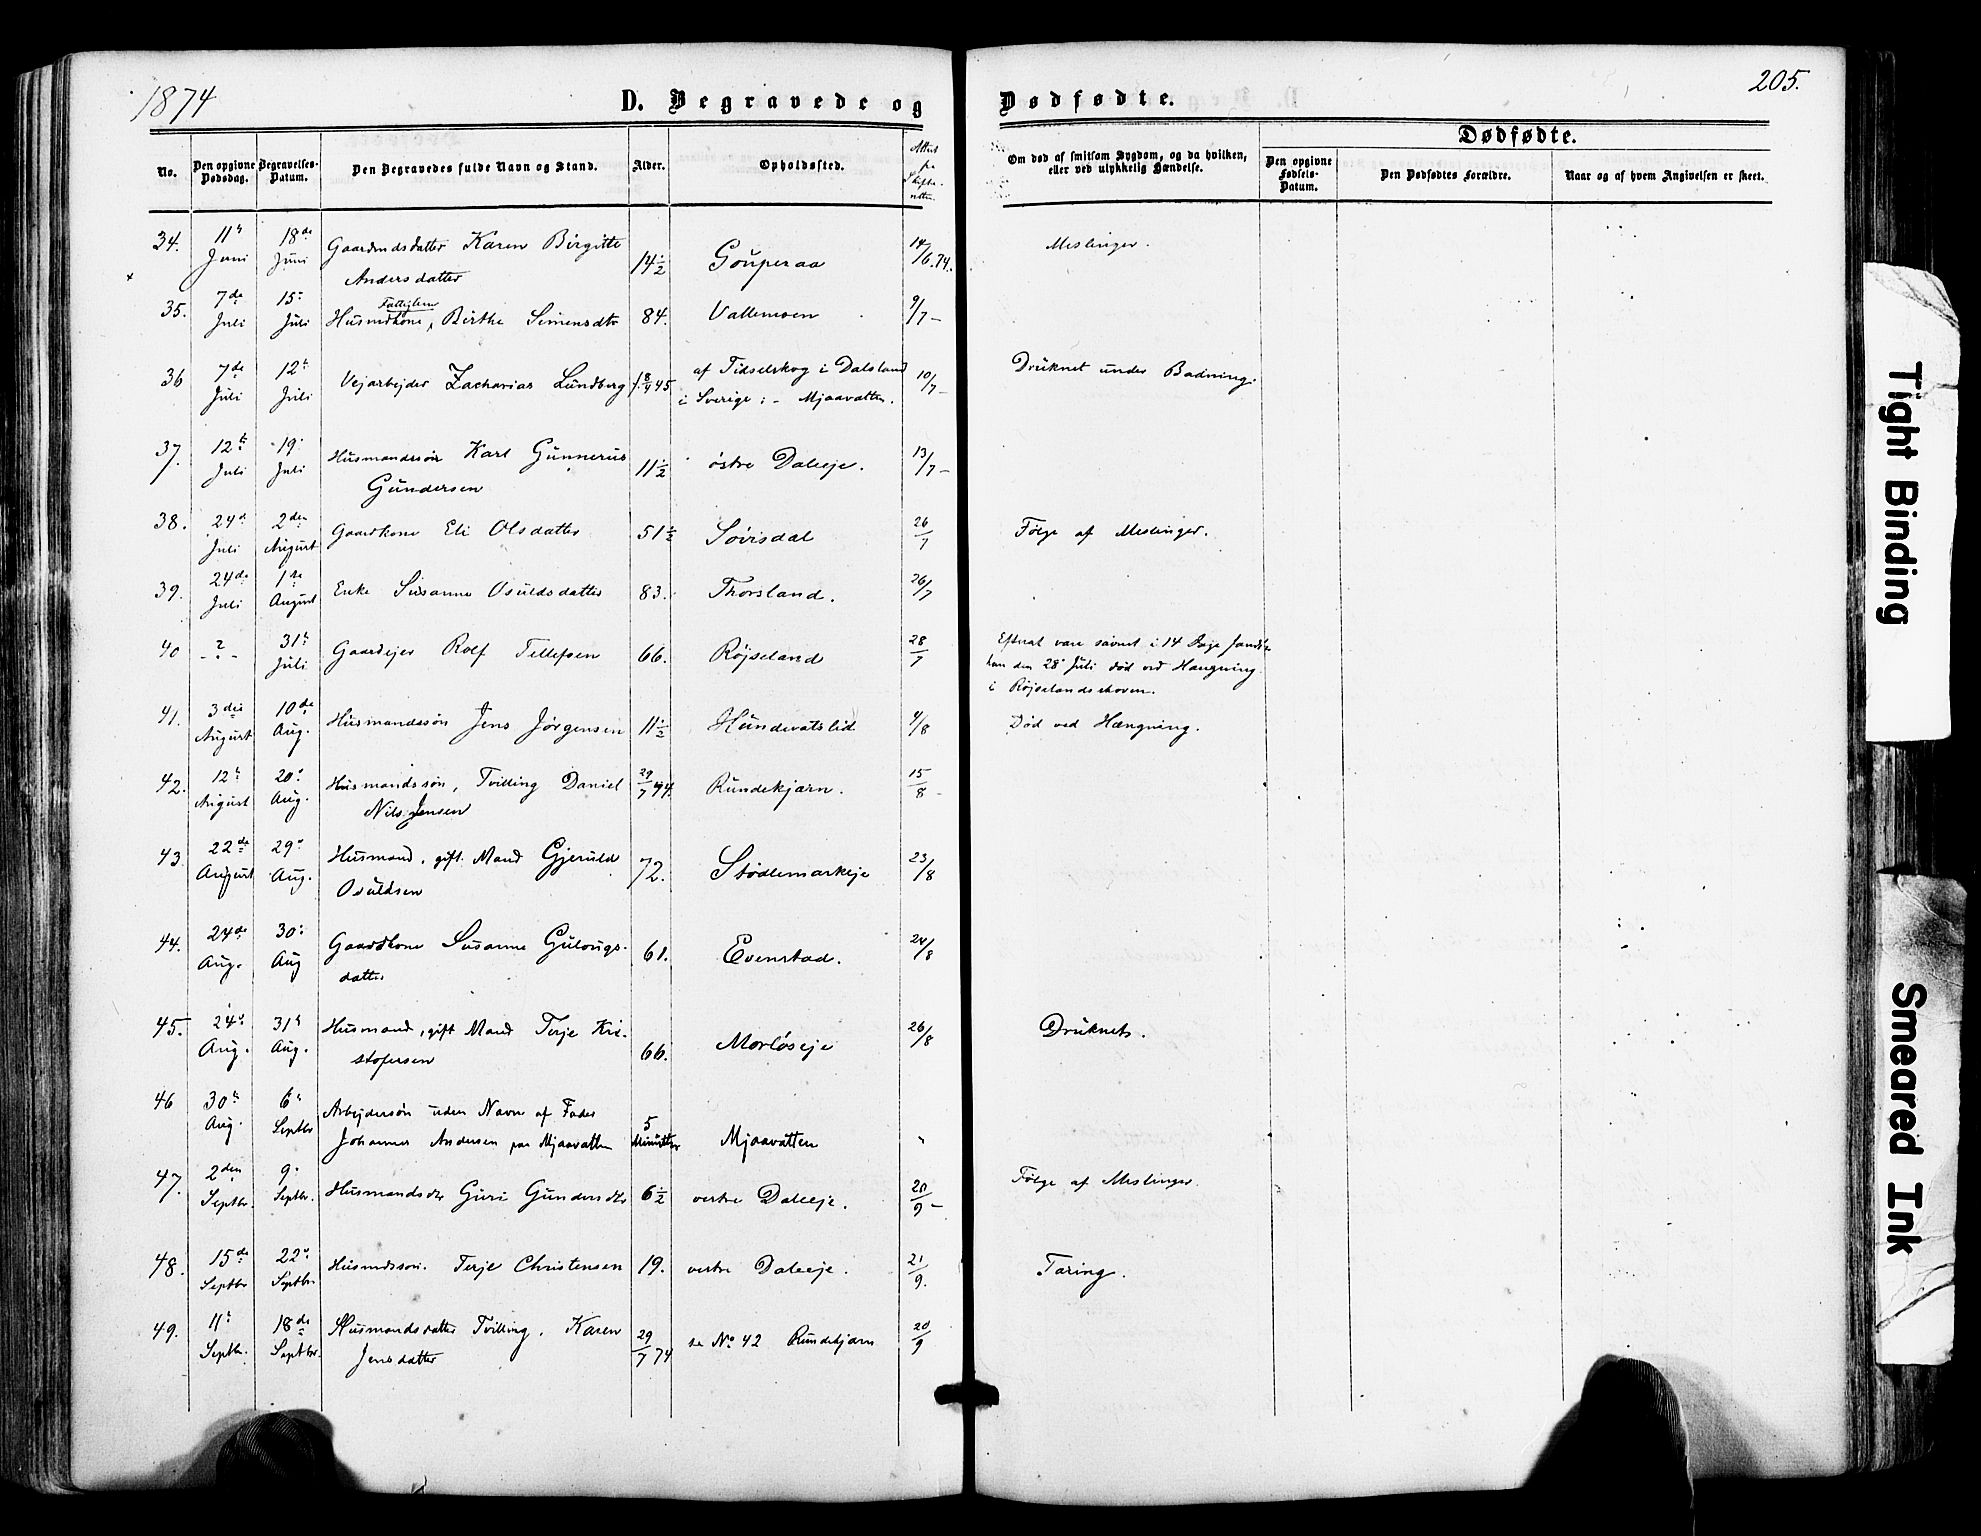 1874
D. Begravede og
Dødfødte.
205.
No.
Den opgivne Dødsdag.
Begravelses-Datum.
Den Begravedes fulde Navn og Stand.
Alder.
Opholdssted.
Attest på Skifteretten
Om død af smitsom Sygdom, og da hvilken, eller ved ulykkelig Hændelse.
Dødfødte.
Den opgivne Fødsels-Datum.
Den Dødfødtes Forældre.
Naar og af hvem Angivelsen er skeet.
34. 11te Juni 18de Juni Gaardmdsdatter Karen Birgitte Andersdatter 14 1/2 Gouperaa 14/6.74. Meslinger.
35. 7de Juli 15. Juli Husmdkone, Fattiglem Birthe Simensdtr 84. Vallemoen 9/7 -
36 7de Juli 12te Juli Vejarbejder Zacharias Lundberg f. 8/4 45 af Tidselskog i Dalsland i Sverige: - Mjaavatten. 10/7 - Druknet under Badning.
37. 12te Juli 19. Juli Husmandssøn Karl Gunnerus Gundersen 11 1/2 østre Daleeje. 13/7 -
38. 24d Juli 2den August Gaardkone Eli Olsdatter 51 1/2 Søvisdal 26/7 Følge af Meslinger.
39. 24de Juli 1ste August Enke Susanne Osuldsdatter 83. Thorsland. 26/7
40 - ? - 31te Juli Gaardejer Rolf Tellefsen 66. Røjseland 28/7 Efterat være savnet i 14 Dage fandtes han den 28. Juli død ved Hængning i Røjselandsskoven.
41. 3die August 10de Aug. Husmandssøn Jens Jørgensen 11 1/2 Hundevatslid 4/8 Død ved Hængning.
42. 12te August 20. Aug. Husmandssøn, Tvilling Daniel Nils Jensen 29/7 74. Rundekjærn. 15/8 -
43. 22de August 29. Aug. Husmand, gift Mand Gjeruld Osuldsen 72. Stødlemarkeje 23/8
44. 24de Aug. 30. Aug Gaardkone Susanne Gulougsdatter 61. Evenstad. 24/8
45. 24. Aug. 31te Aug. Husmand, gift Mand Terje Kristofersen 66. Morløseje 26/8 Druknet.
46 30te Aug. 6te Septbr Arbejdersøn uden Navn af Fader Johannes Andersen paa Mjaavatten 5 Minutter Mjaavatten "
47. 2den Septbr. 9. Septbr. Husmandsdtr Guri Gundersdtr 6 1/2 vestre Daleeje. 20/9 - Følge af Meslinger.
48. 15de Septbr 22. Septbr Husmdssøn. Terje Christensen 19. vestre Daleeje. 21/9. Tæring.
49. 11te Septbr. 18de Septbr. Husmandsdatter Tvilling. Karen Jensdatter 29/7 74 se No 42 Rundekjærn 20/9
Tight Binding
Smeared Ink